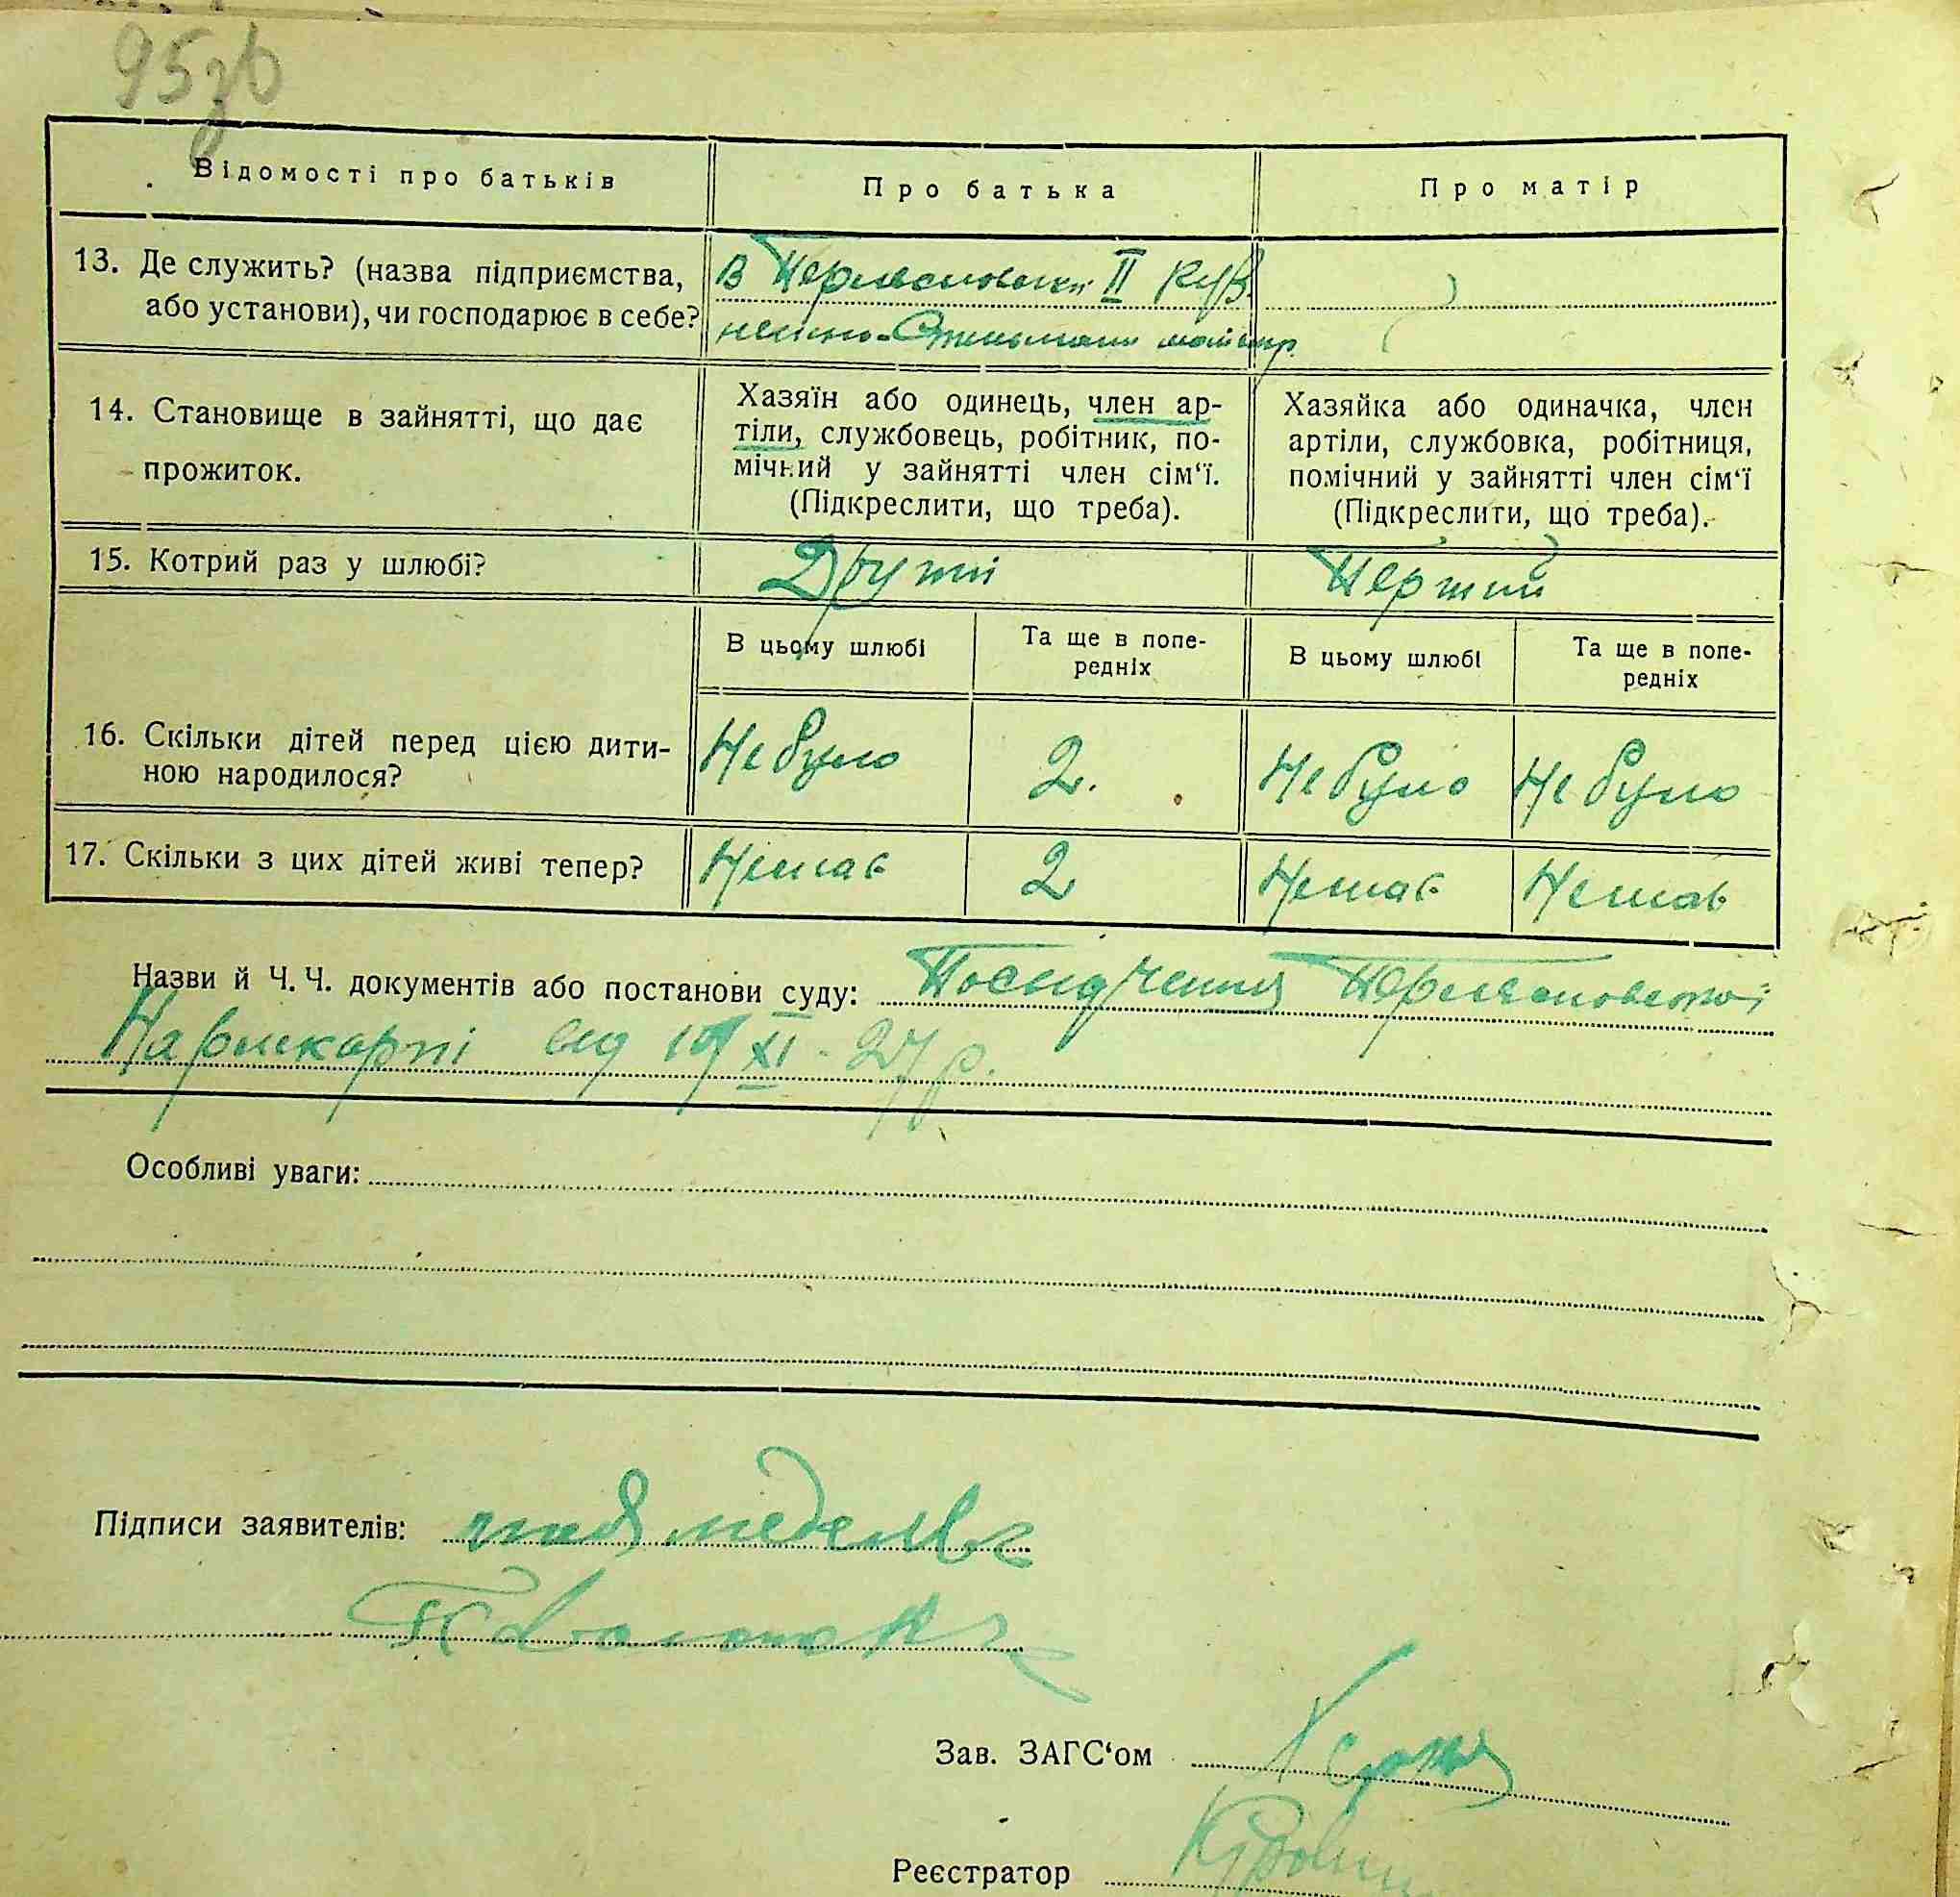 95зв
Відомості про батьків
Про батька
Про матір
13. Де служить? (назва підприємства,
або установи), чи господарює в себе?
В II
14. Становище в зайнятті, що дає
прожиток.
Хазяїн або одинець, член ар-
тіли, службовець, робітник, по-
мічний у зайнятті член сім‘ї.
(Підкреслити, що треба).
Хазяйка або одиначка, член
артіли, службовка, робітниця,
помічний у зайнятті член сім‘ї
(Підкреслити, що треба).
15. Котрий раз у шлюбі?
Другий
Перший
В цьому шлюбі
Та ще в попе-
редніх
В цьому шлюбі
Та ще в попе-
редніх
16. Скільки дітей перед цією дити-
ною народилося?
Не було
2.
Не було
Не було
17. Скільки з цих дітей живі тепер?
Немає
2
Немає
Немає
Назви й Ч. Ч. документів або постанови суду: Посвідчення
від XI - 27 р.
Особливі уваги:
Підписи заявителів:
Зав. ЗАГС‘ом
Реєстратор